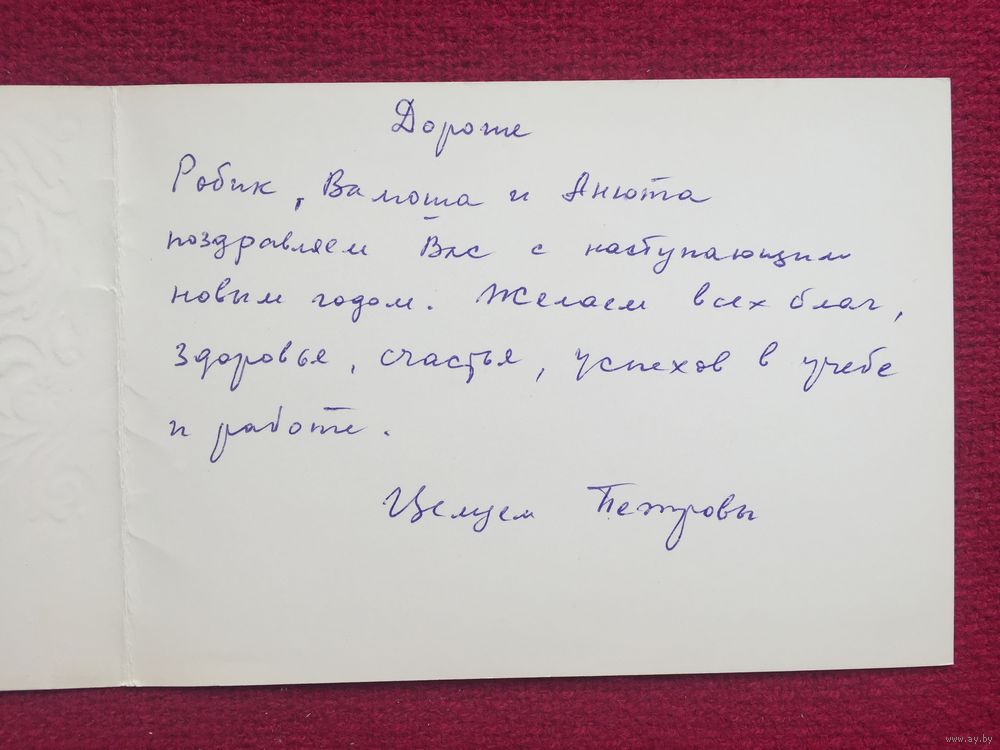 Дорогие
Робик, Валюша и Анюта
поздравляем Вас с наступающим
новым годом. Желаем всех благ,
здоровье, счастья, успехов в учебе
и работе.
Целуем Петровы
www.ay.by